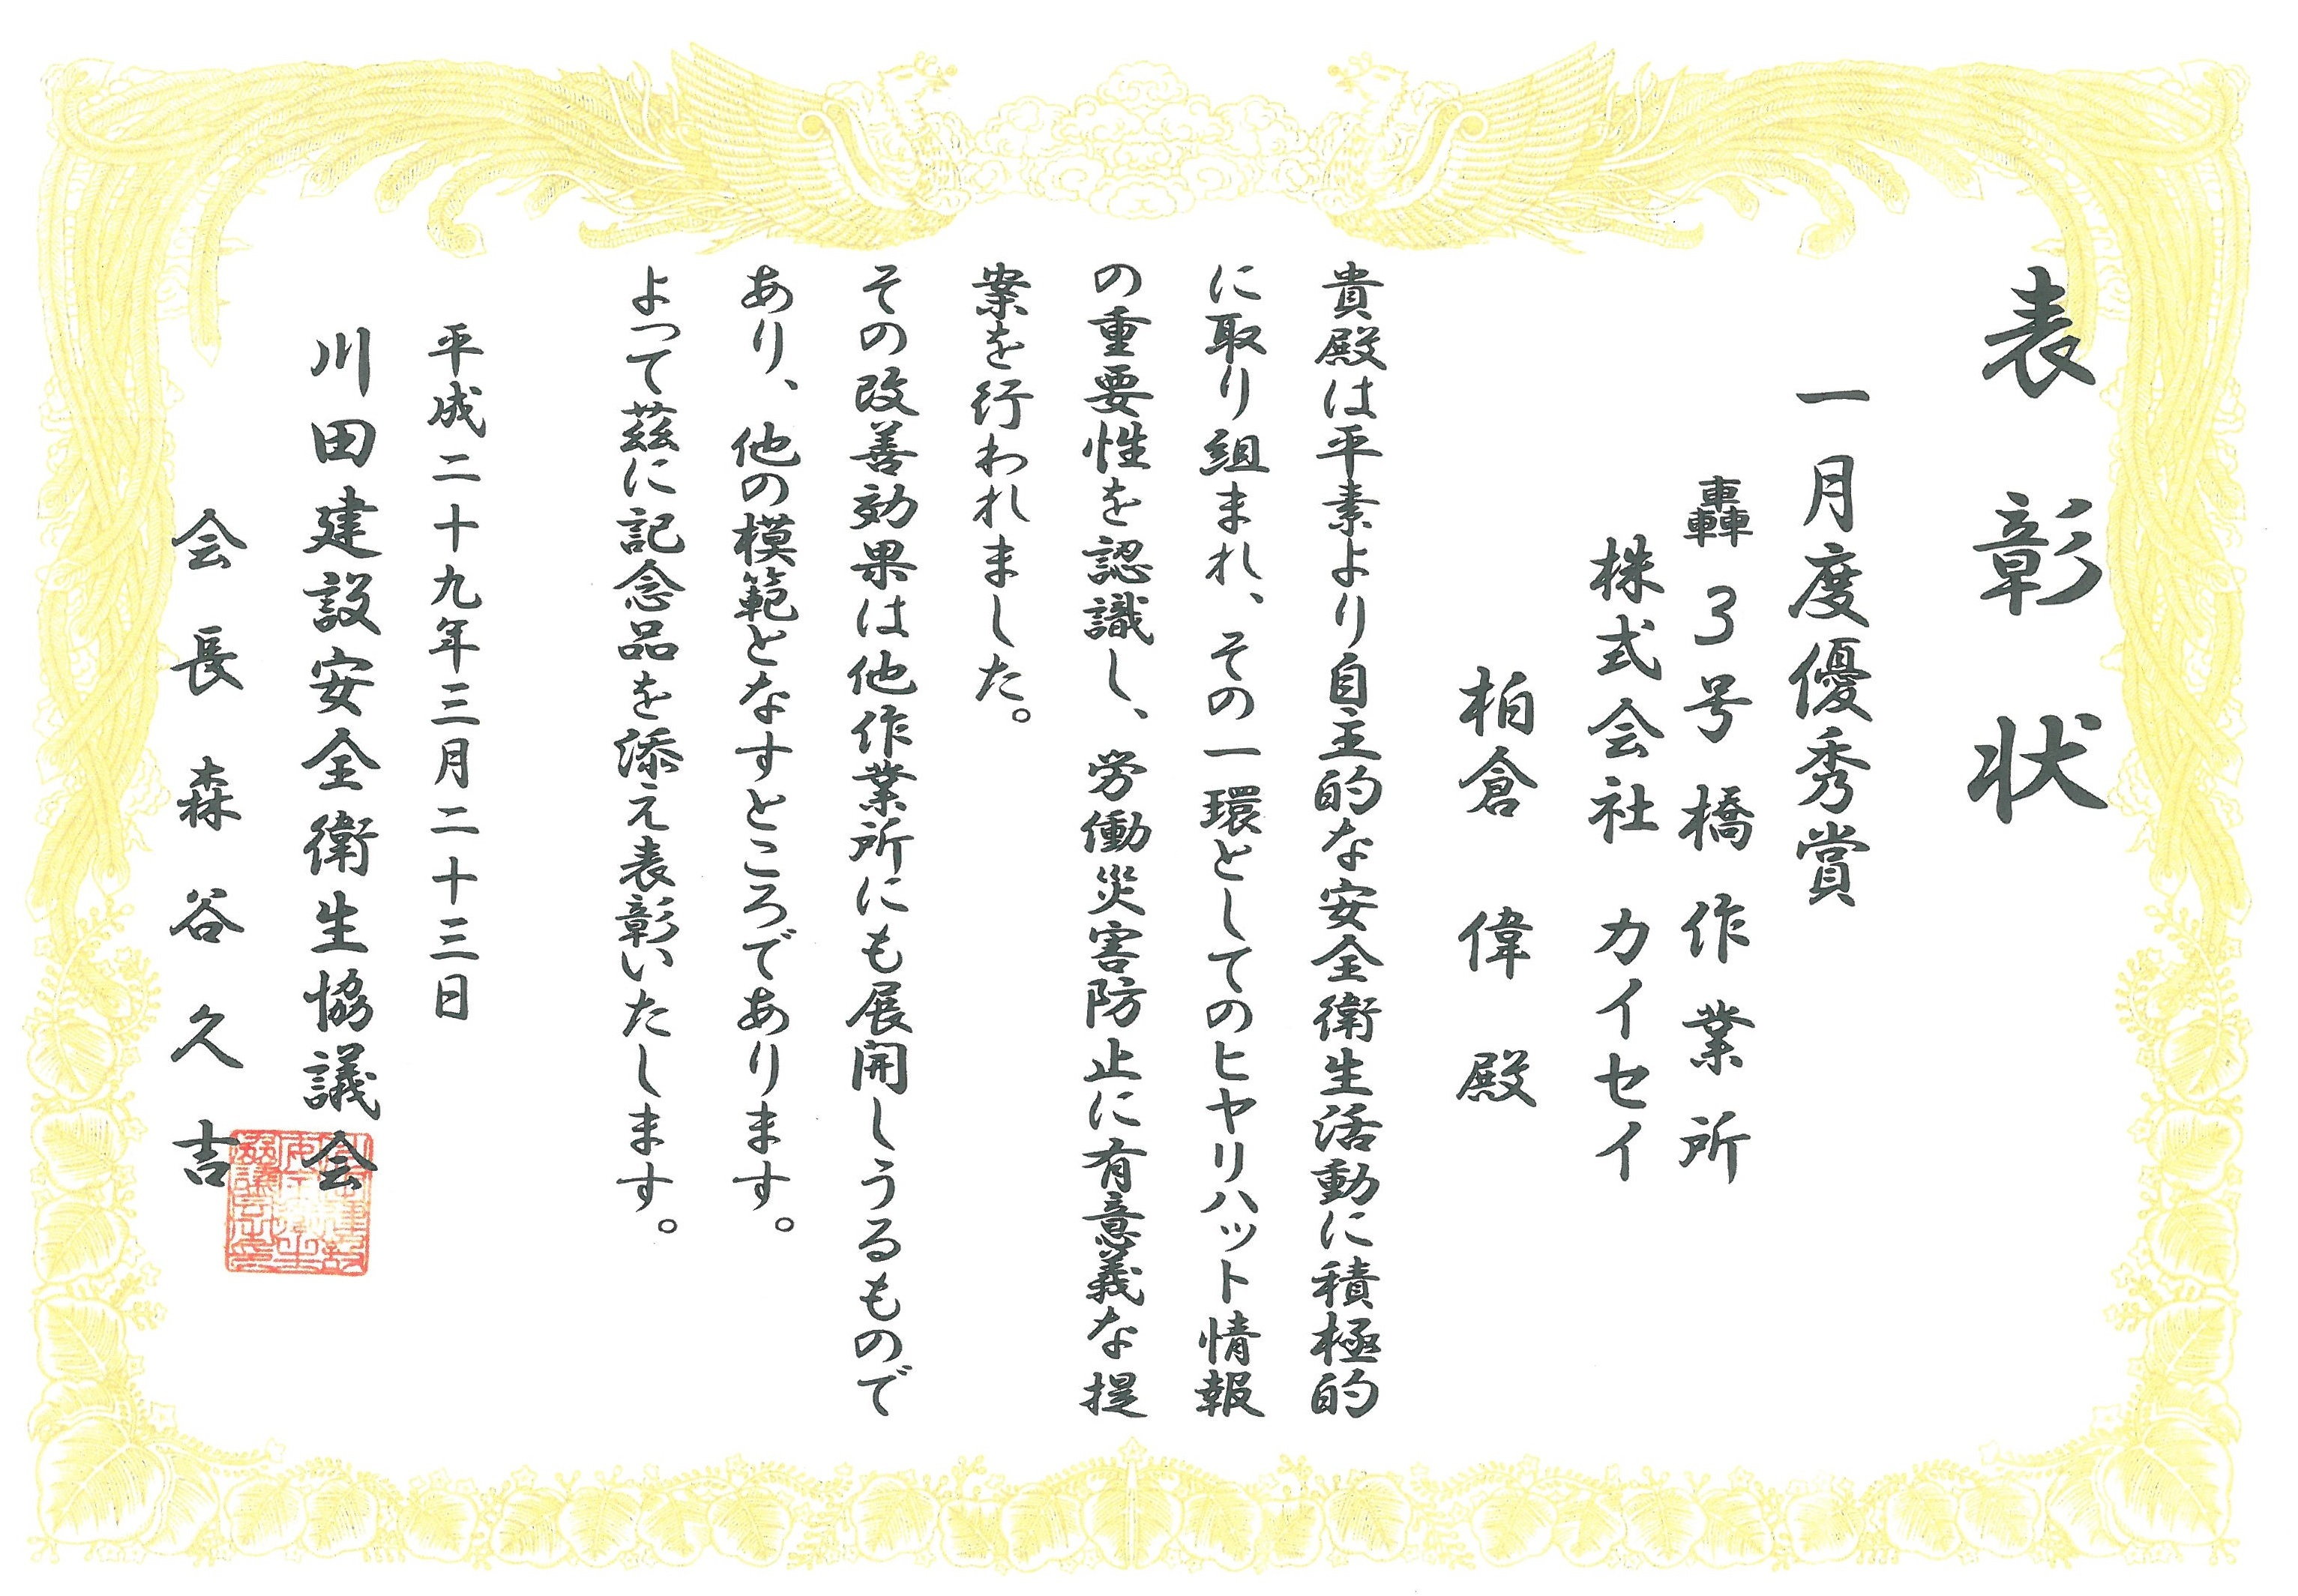 表彰状
一月度優秀賞
轟3号橋作業所
株式会社 カイセイ
柏倉 偉 殿
貴殿は平素より自主的な安全衛生活動に積極的
に取り組まれ、その一環としてのヒヤリハット情報
の重要性を認識し、労働災害防止に有意義な提
案を行われました。
その改善効果は他作業所にも展開しうるもので
あり、他の模範となすところであります。
よって茲に記念品を添え表彰いたします。
平成二十九年三月二十三日
川田建設安全衛生協議会
会長 森谷久吉